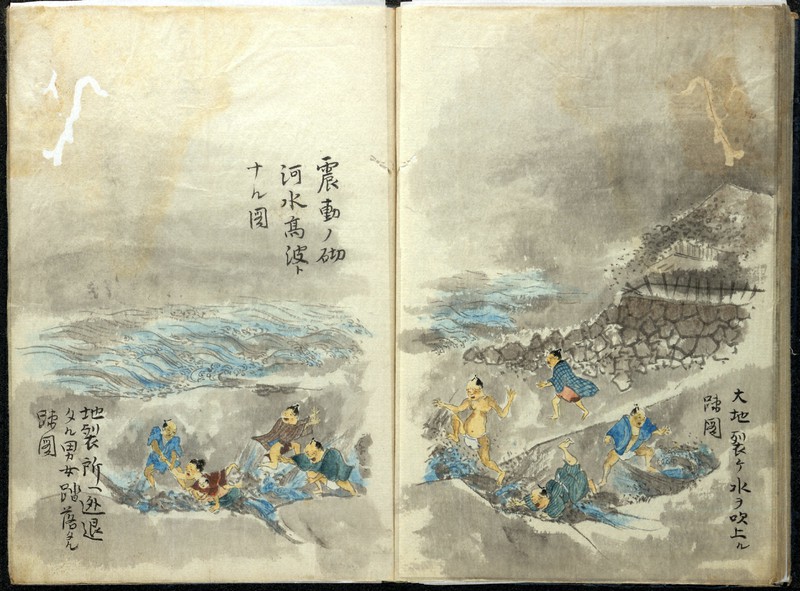 大地裂ケ水ヲ吹上ル
図
震動ノ砌
河水高波ト
ナル図
地裂所
タル男女踏落
図